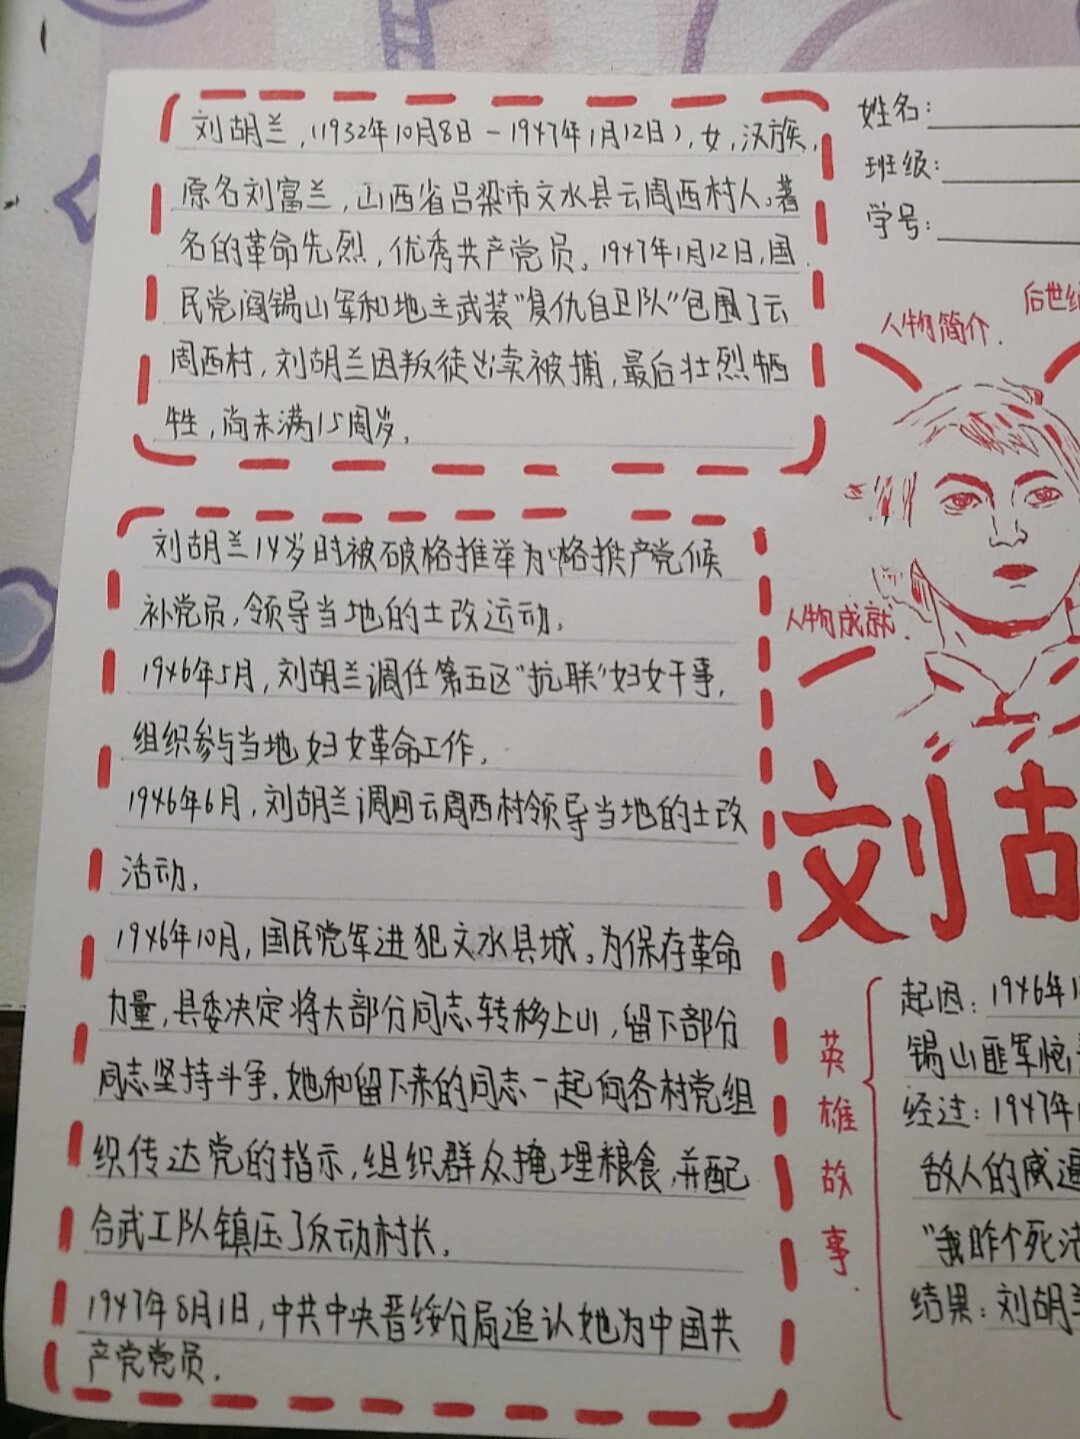 刘胡兰，(1932年10月8日-1947年1月12日)，女，汉族，
原名刘富兰，山西省吕梁市文水县云周西村人。著
名的革命先烈，优秀共产党员。1947年1月12日，国
民党阎锡山军和地主武装“复仇自卫队”包围了云
周西村，刘胡兰因叛徒出卖被捕，最后壮烈牺
牲，尚未满15周岁。
刘胡兰14岁时被破格推举为
补党员，领导当地的土改运动。
1946年5月，刘胡兰调任第五区“抗联”妇女干事，
组织参与当地妇女革命工作。
1946年6月，刘胡兰调回云周西村领导当地的土改
活动。
1946年10月，国民党军进犯文水县城。为保存革命
力量，县委决定将大部分同志转移上山，留下部分
同志坚持斗争。她和留下来的同志一起向各村党组
织传达党的指示，组织群众掩埋粮食，并配
合武工队镇压了反动村长。
1947年8月1日，中共中央晋绥分局追认她为中国共
产党党员．
姓名：
班级：
学号：
后世纪
人物简介．
人物成就．
刘胡
英雄故事．
起因：1946年1
锡山匪军
经过：1947年
敌人的威逼
“我咋个死法
结果：刘胡兰